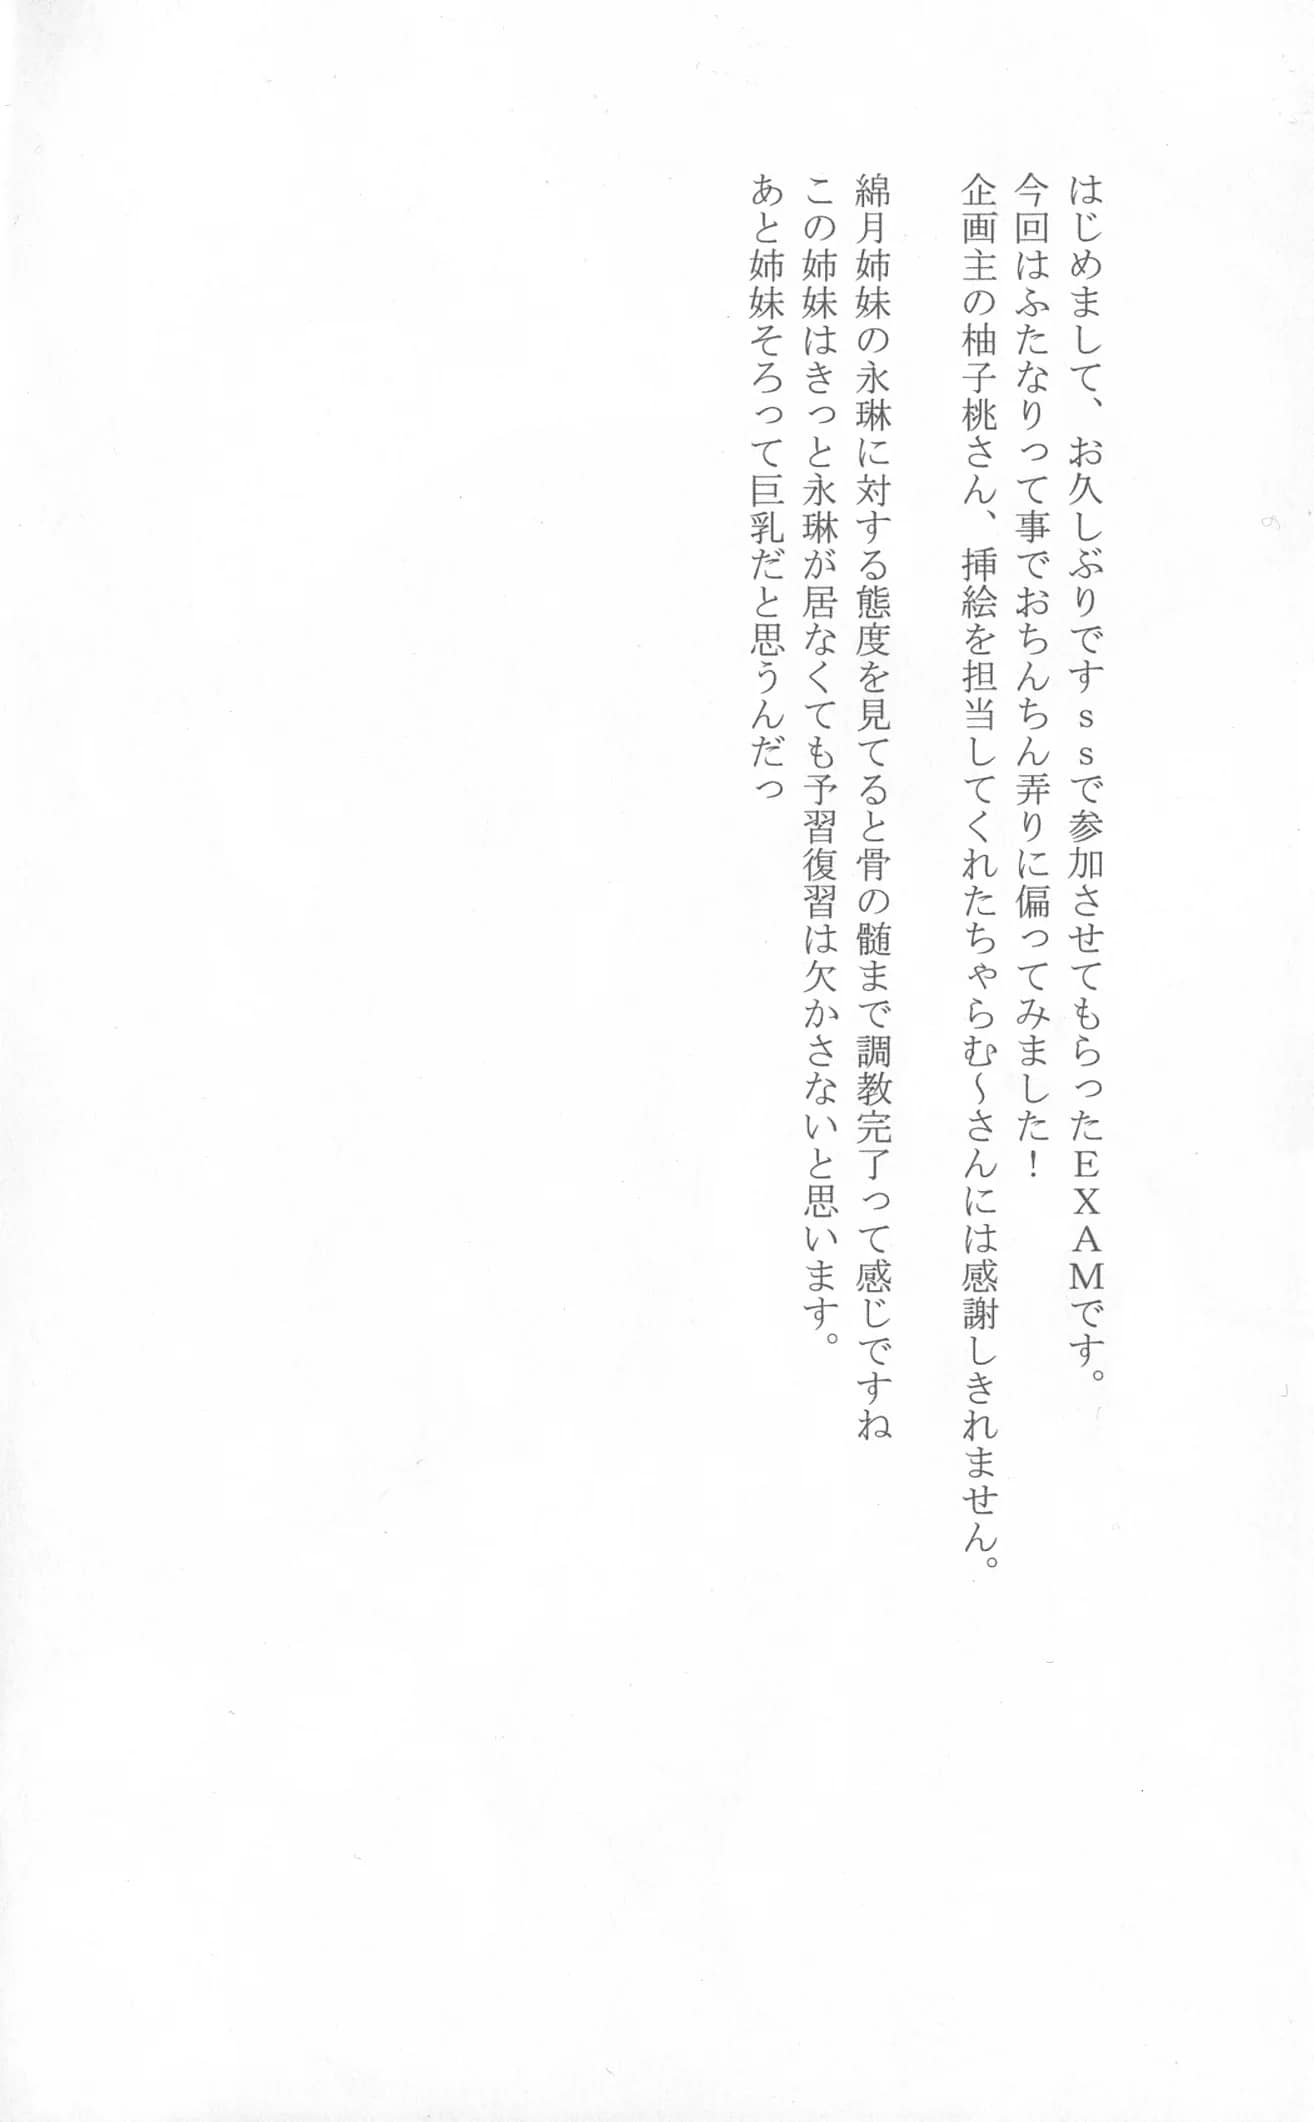 はじめまして、お久しぶりですｓｓで参加させてもらったＥＸＡＭです。
今回はふたなりって事でおちんちん弄りに偏ってみました！
企画主の柚子桃さん、挿絵を担当してくれたちゃらむ～さんには感謝しきれません。
綿月姉妹の永琳に対する態度を見てると骨の髄まで調教完了って感じですね
この姉妹はきっと永琳が居なくても予習復習は欠かさないと思います。
あと姉妹そろって巨乳だと思うんだっ